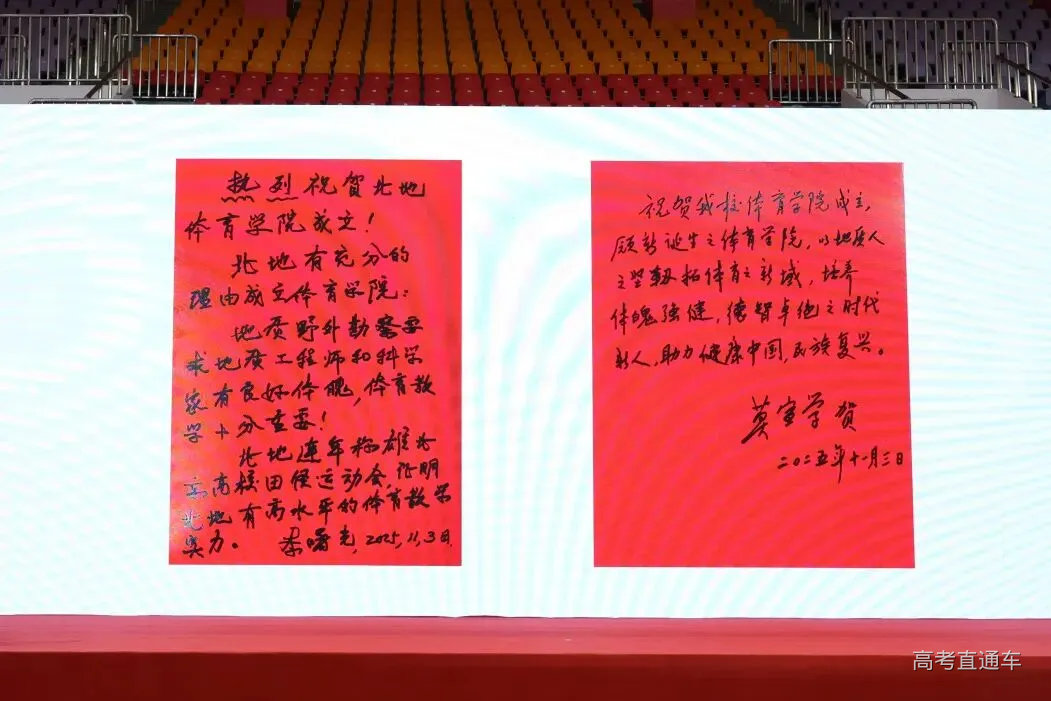 热烈祝贺北地
体育学院成立!
北地有充分的
理由成立体育学院:
地质野外勘察要
求地质工程师和科学
家有良好体魄,体育教
学十分重要!
北地连年称雄北
京高校田径运动会,证明
北地有高水平的体育教学
实力。 李曙光,2025,11,3日.
祝贺我校体育学院成立,
愿新诞生之体育学院,以地质人
之坚韧拓体育之新域,培养
体魄强健,德智卓绝之时代
新人,助力健康中国,民族复兴。
莫宣学贺
二〇二五年十一月三日
高考直通车